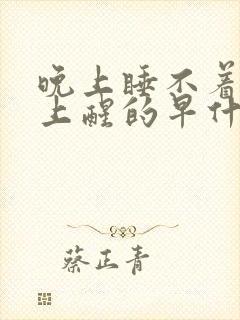 晚上睡不着
上醒的早什
蔡正青